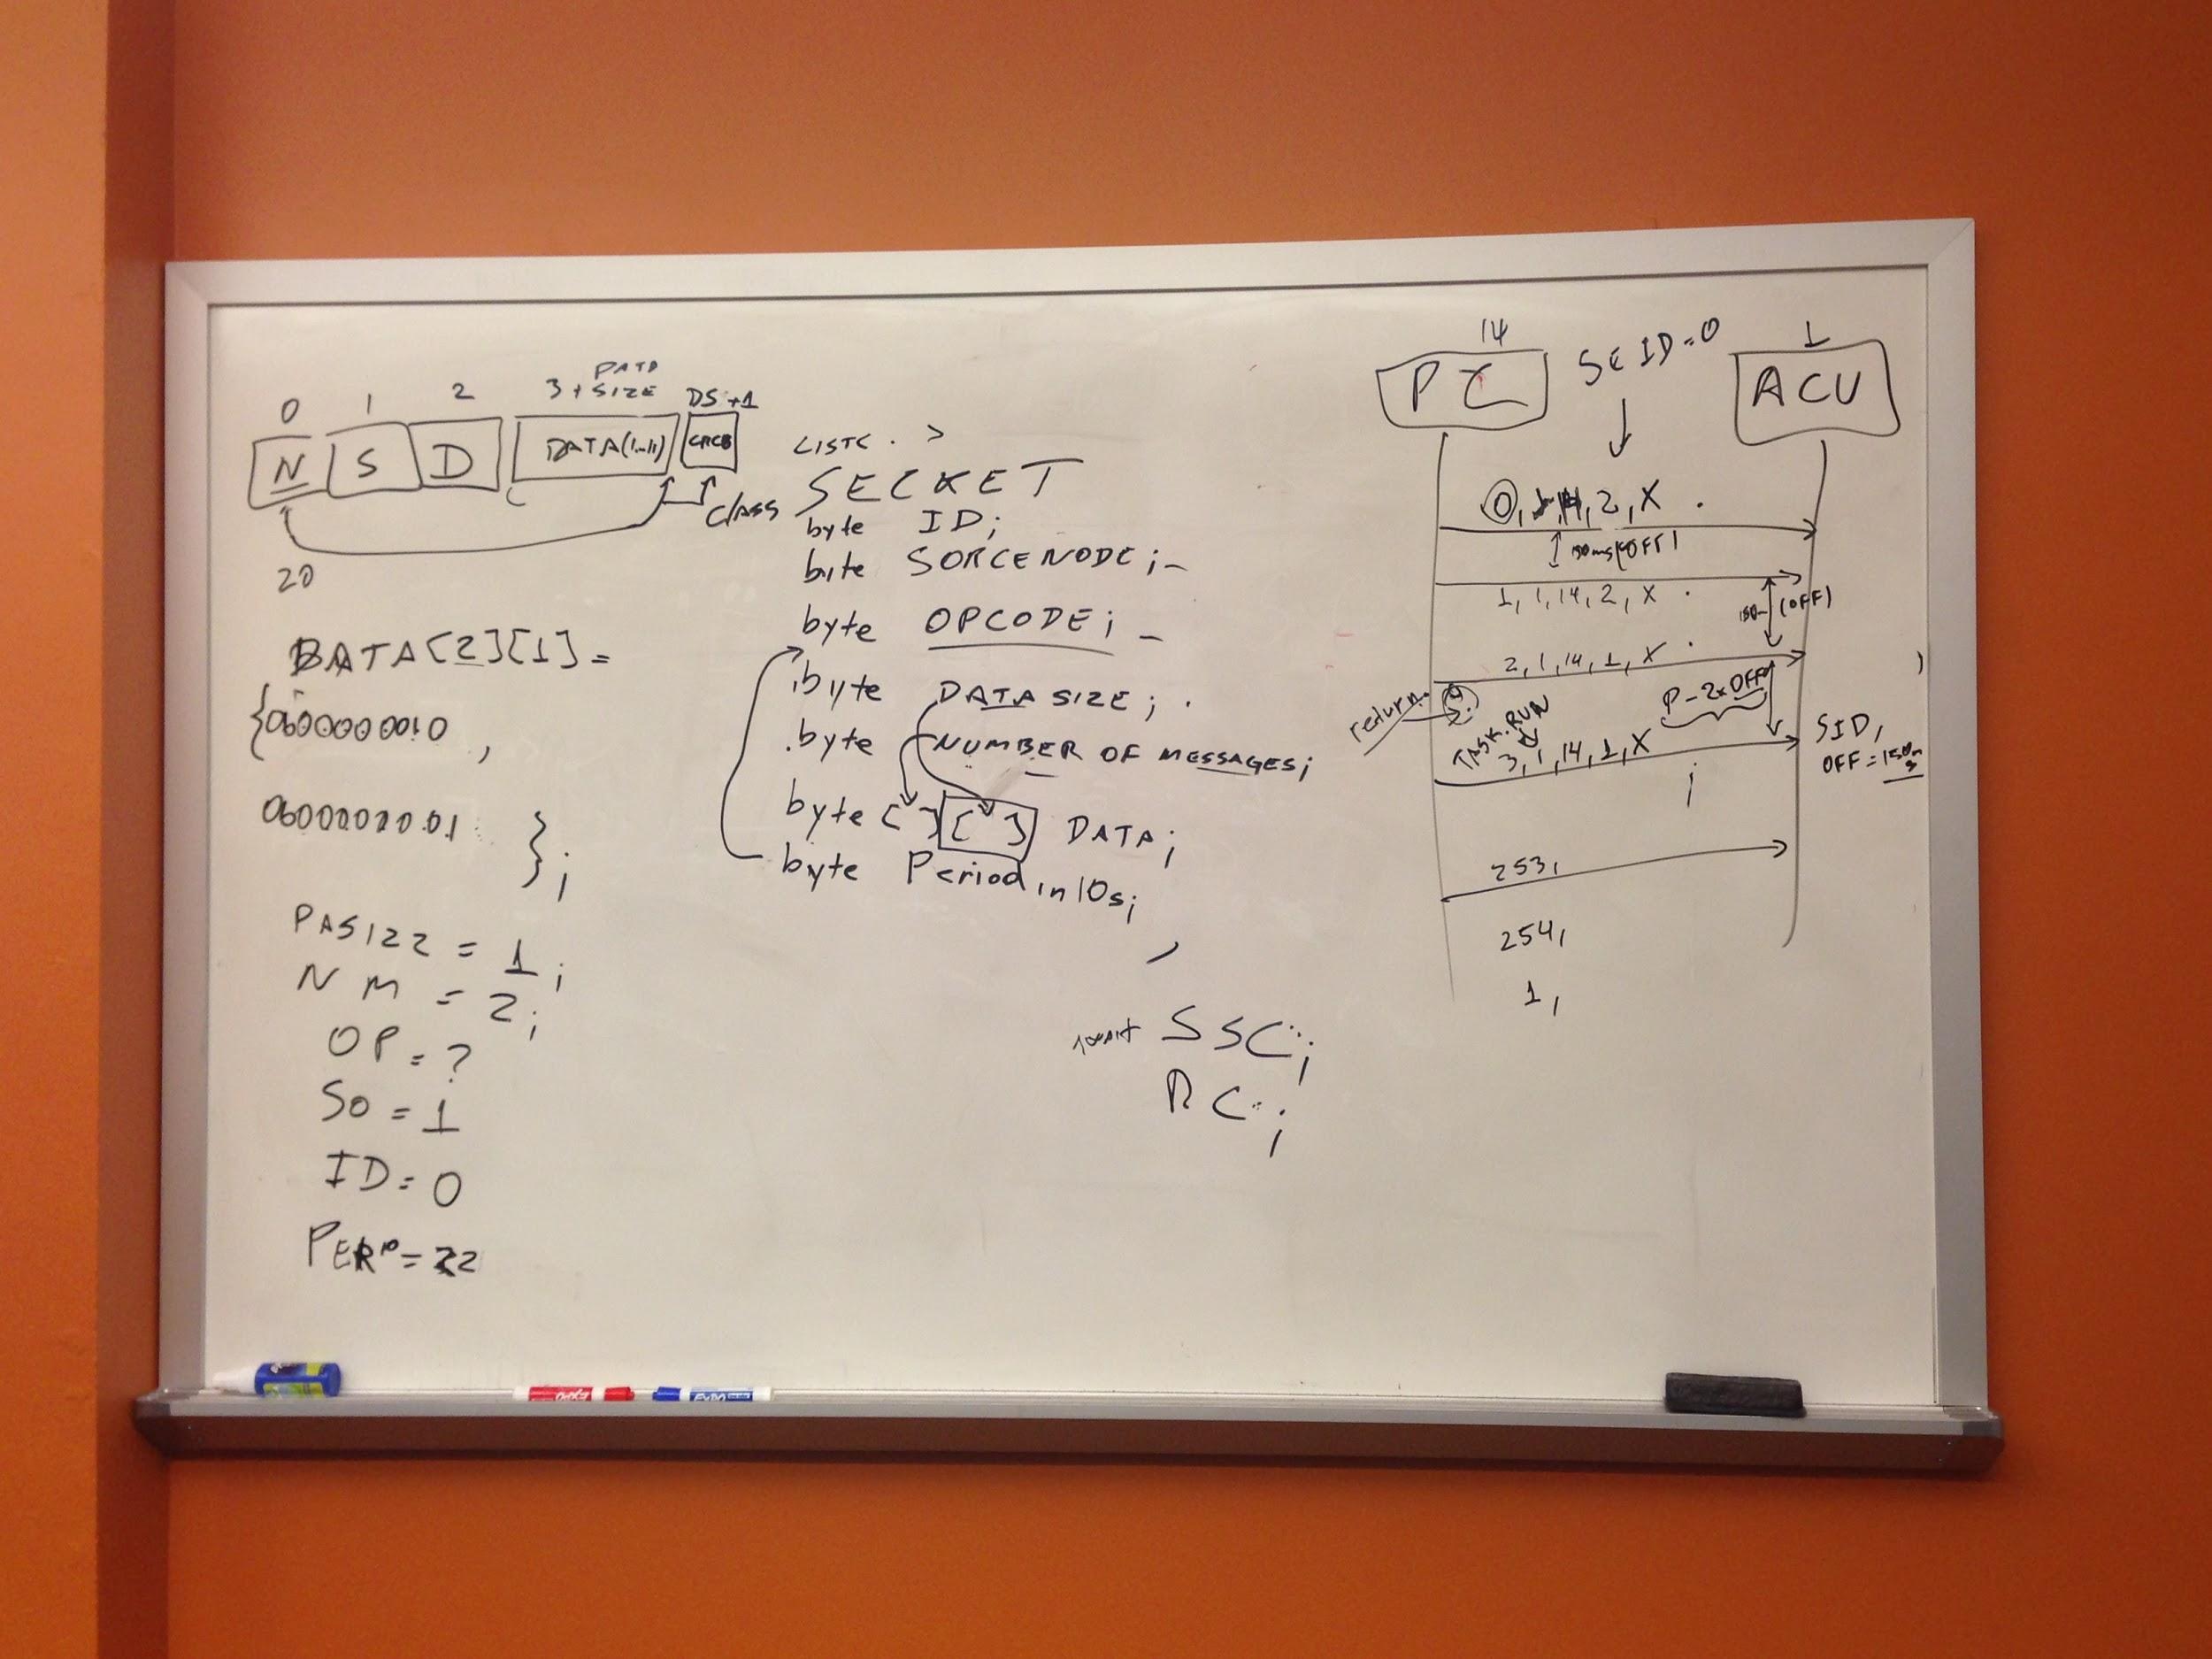 0 1 2 3 + SIZE DS+1
N S D DATA(1..11)
20
DATA[2][1] =
{0b00000010
,
0b00000001
};
= 1;
N M = 2;
OP = ?
SO = 1
ID = 0
class SECKET
byte ID;
byte SORCENODE;
byte OPCODE;
byte DATA SIZE;
byte NUMBER OF MESSAGES;
byte [ ] [ ] DATA;
byte Period in 10s;
SSC;
RC;
14
PC
ID=0
1
ACU
0, 14, 2, X
(OFF)
1, 1, 14, 2, X
(OFF)
2, 1, 14, 1, X
return
P-2xOFF
TASK.RUN
3, 1, 14, 1, X
SID,
OFF=150m
253,
254,
1,